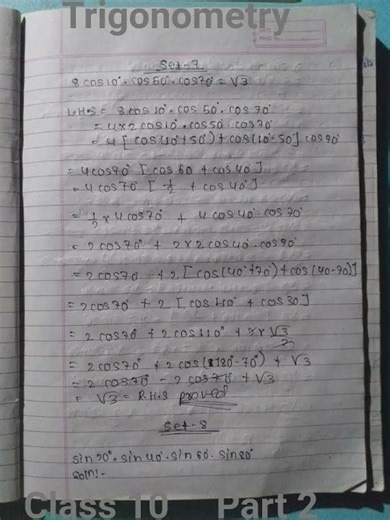 Trigonometry
Set-7
8 cos10°·cos50°·cos70° = √3
L.H.S = 8 cos10°·cos50°·cos70°
= 4x2cos10°·cos50·cos70
= 4[cos(10°+50°)+cos(10°-50] cos70
= 4cos70°[cos60+cos40°]
= 4cos70°[½ + cos40°]
= ½x4cos70° + 4cos40°cos70°
= 2cos70° + 2x2cos40·cos70
= 2cos70 + 2[cos(40°+70)+cos(40-70)]
= 2cos70° + 2[cos110°+cos30]
= 2cos70° + 2cos110° + 2x√3/2
= 2cos70° + 2cos(180°-70°) + √3
= 2cos70° - 2cos70° + √3
= √3 = R.H.S proved
Set-8
sin20°·sin40·sin60·sin80°
Soln:-
Class 10 Part 2